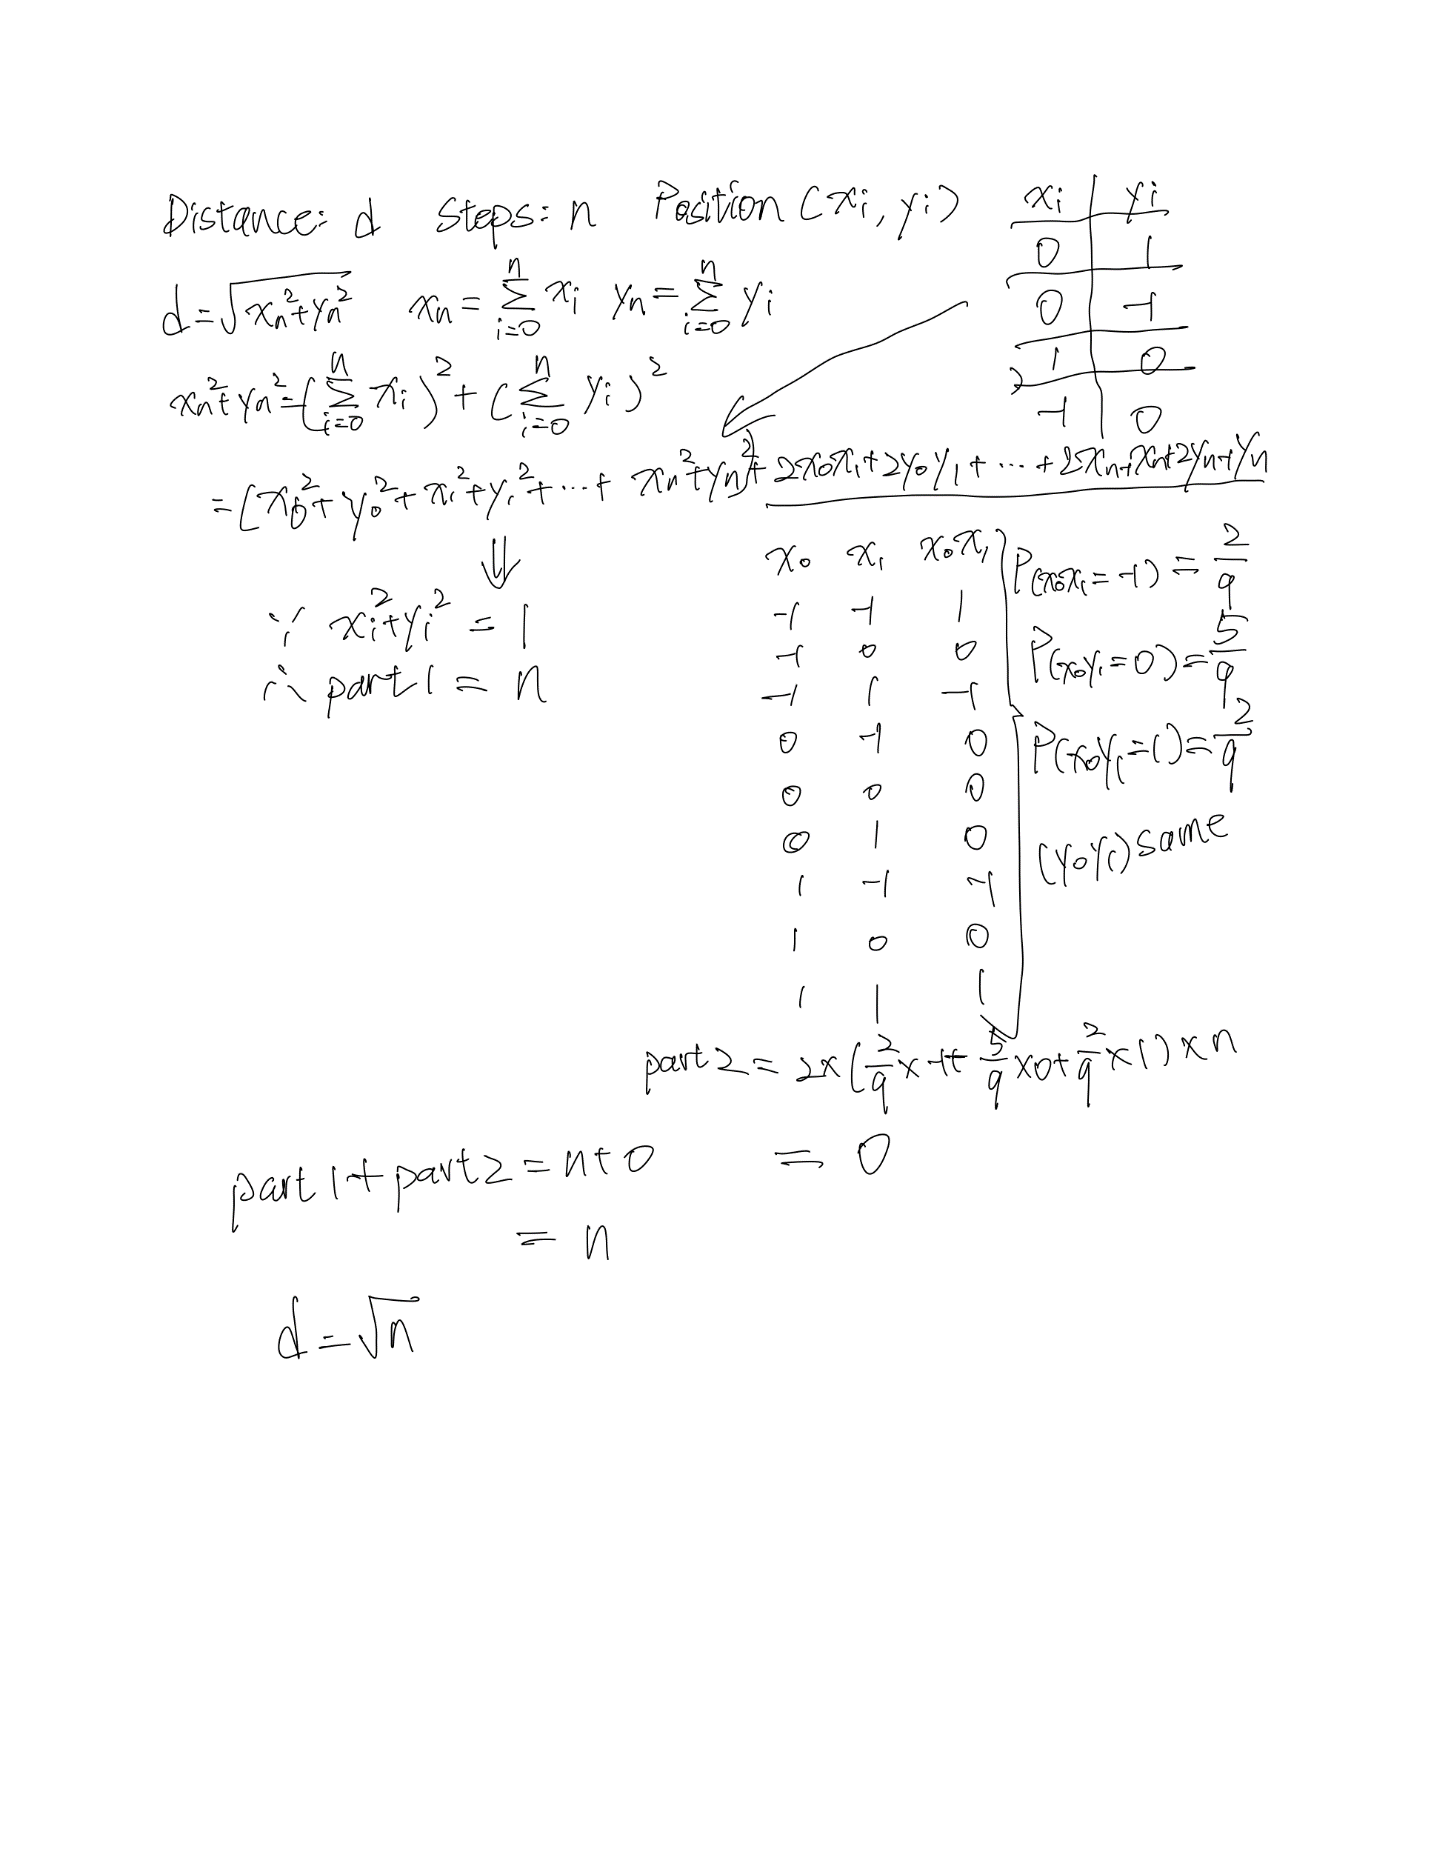 Distance: d Steps: n Position (xi, yi)
xi | yi
0 | 1
0 | -1
1 | 0
-1 | 0
d = √(xn² + yn²) xn = Σ_{i=0}^{n} xi yn = Σ_{i=0}^{n} yi
xn² + yn² = (Σ_{i=0}^{n} xi)² + (Σ_{i=0}^{n} yi)²
= (x0² + y0² + x1² + y1² + ... + xn² + yn²) + 2x0x1 + 2y0y1 + ... + 2xn-1xn + 2yn-1yn
⇓
∵ xi² + yi² = 1
∴ part1 = n
x0 x1 x0x1
-1 -1 1
-1 0 0
-1 1 -1
0 -1 0
0 0 0
0 1 0
1 -1 -1
1 0 0
1 1 1
P(x0x1 = -1) = 2/9
P(x0y1 = 0) = 5/9
P(x0y1 = 1) = 2/9
(y0y1) same
part2 = 2x(2/9 x -1 + 5/9 x 0 + 2/9 x 1) x n
= 0
part1 + part2 = n + 0
= n
d = √n